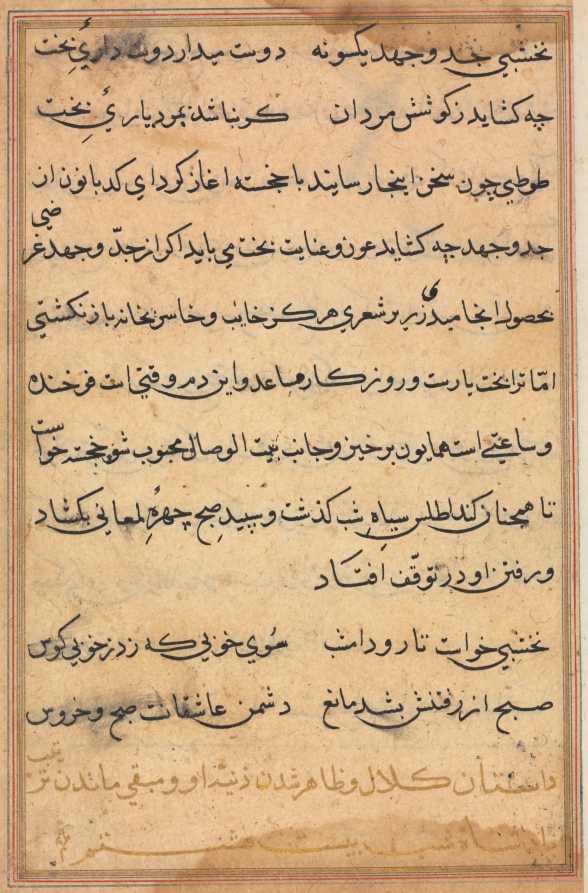 نخشبی جد و جهد یکسونه دوست میدارد وت داریٔ بخت
چه کشاید ز کوشش مردان کر نباشد بمرد یاریٔ بخت
طوطی چون سخن اینجا رسانید با خجسته اغاز کرد ای کدبانو از
جد و جهد چه کشاید عون و عنایت بخت می باید اکر از جدّ و جهد غرضی
بحصول انجامیدی زیر بر شعری هرکز خایب و خاسر بخانه باز نکشتی
امّا ترا بخت یارست و روزکار مساعد و این دم وقتی است فرخنده
و ساعتی است همایون برخیز و جانب بیت الوصال محبوب شو خجسته خواست
تا همچنان کند اطلس سیاه شب کذشت و سپید صبح چهره لمعانی بکشاد
و رفتن او در توقّف افتاد
نخشبی خواست تا رود امشب سوی خوبی که زد ز خوبی کوس
صبح از رفتنش بشد مانع دشمن عاشقانست صبح و خروس
داستان کلال و ظاهر شدن او و مبقی ماندن ترتیب
شب بیست هشتم